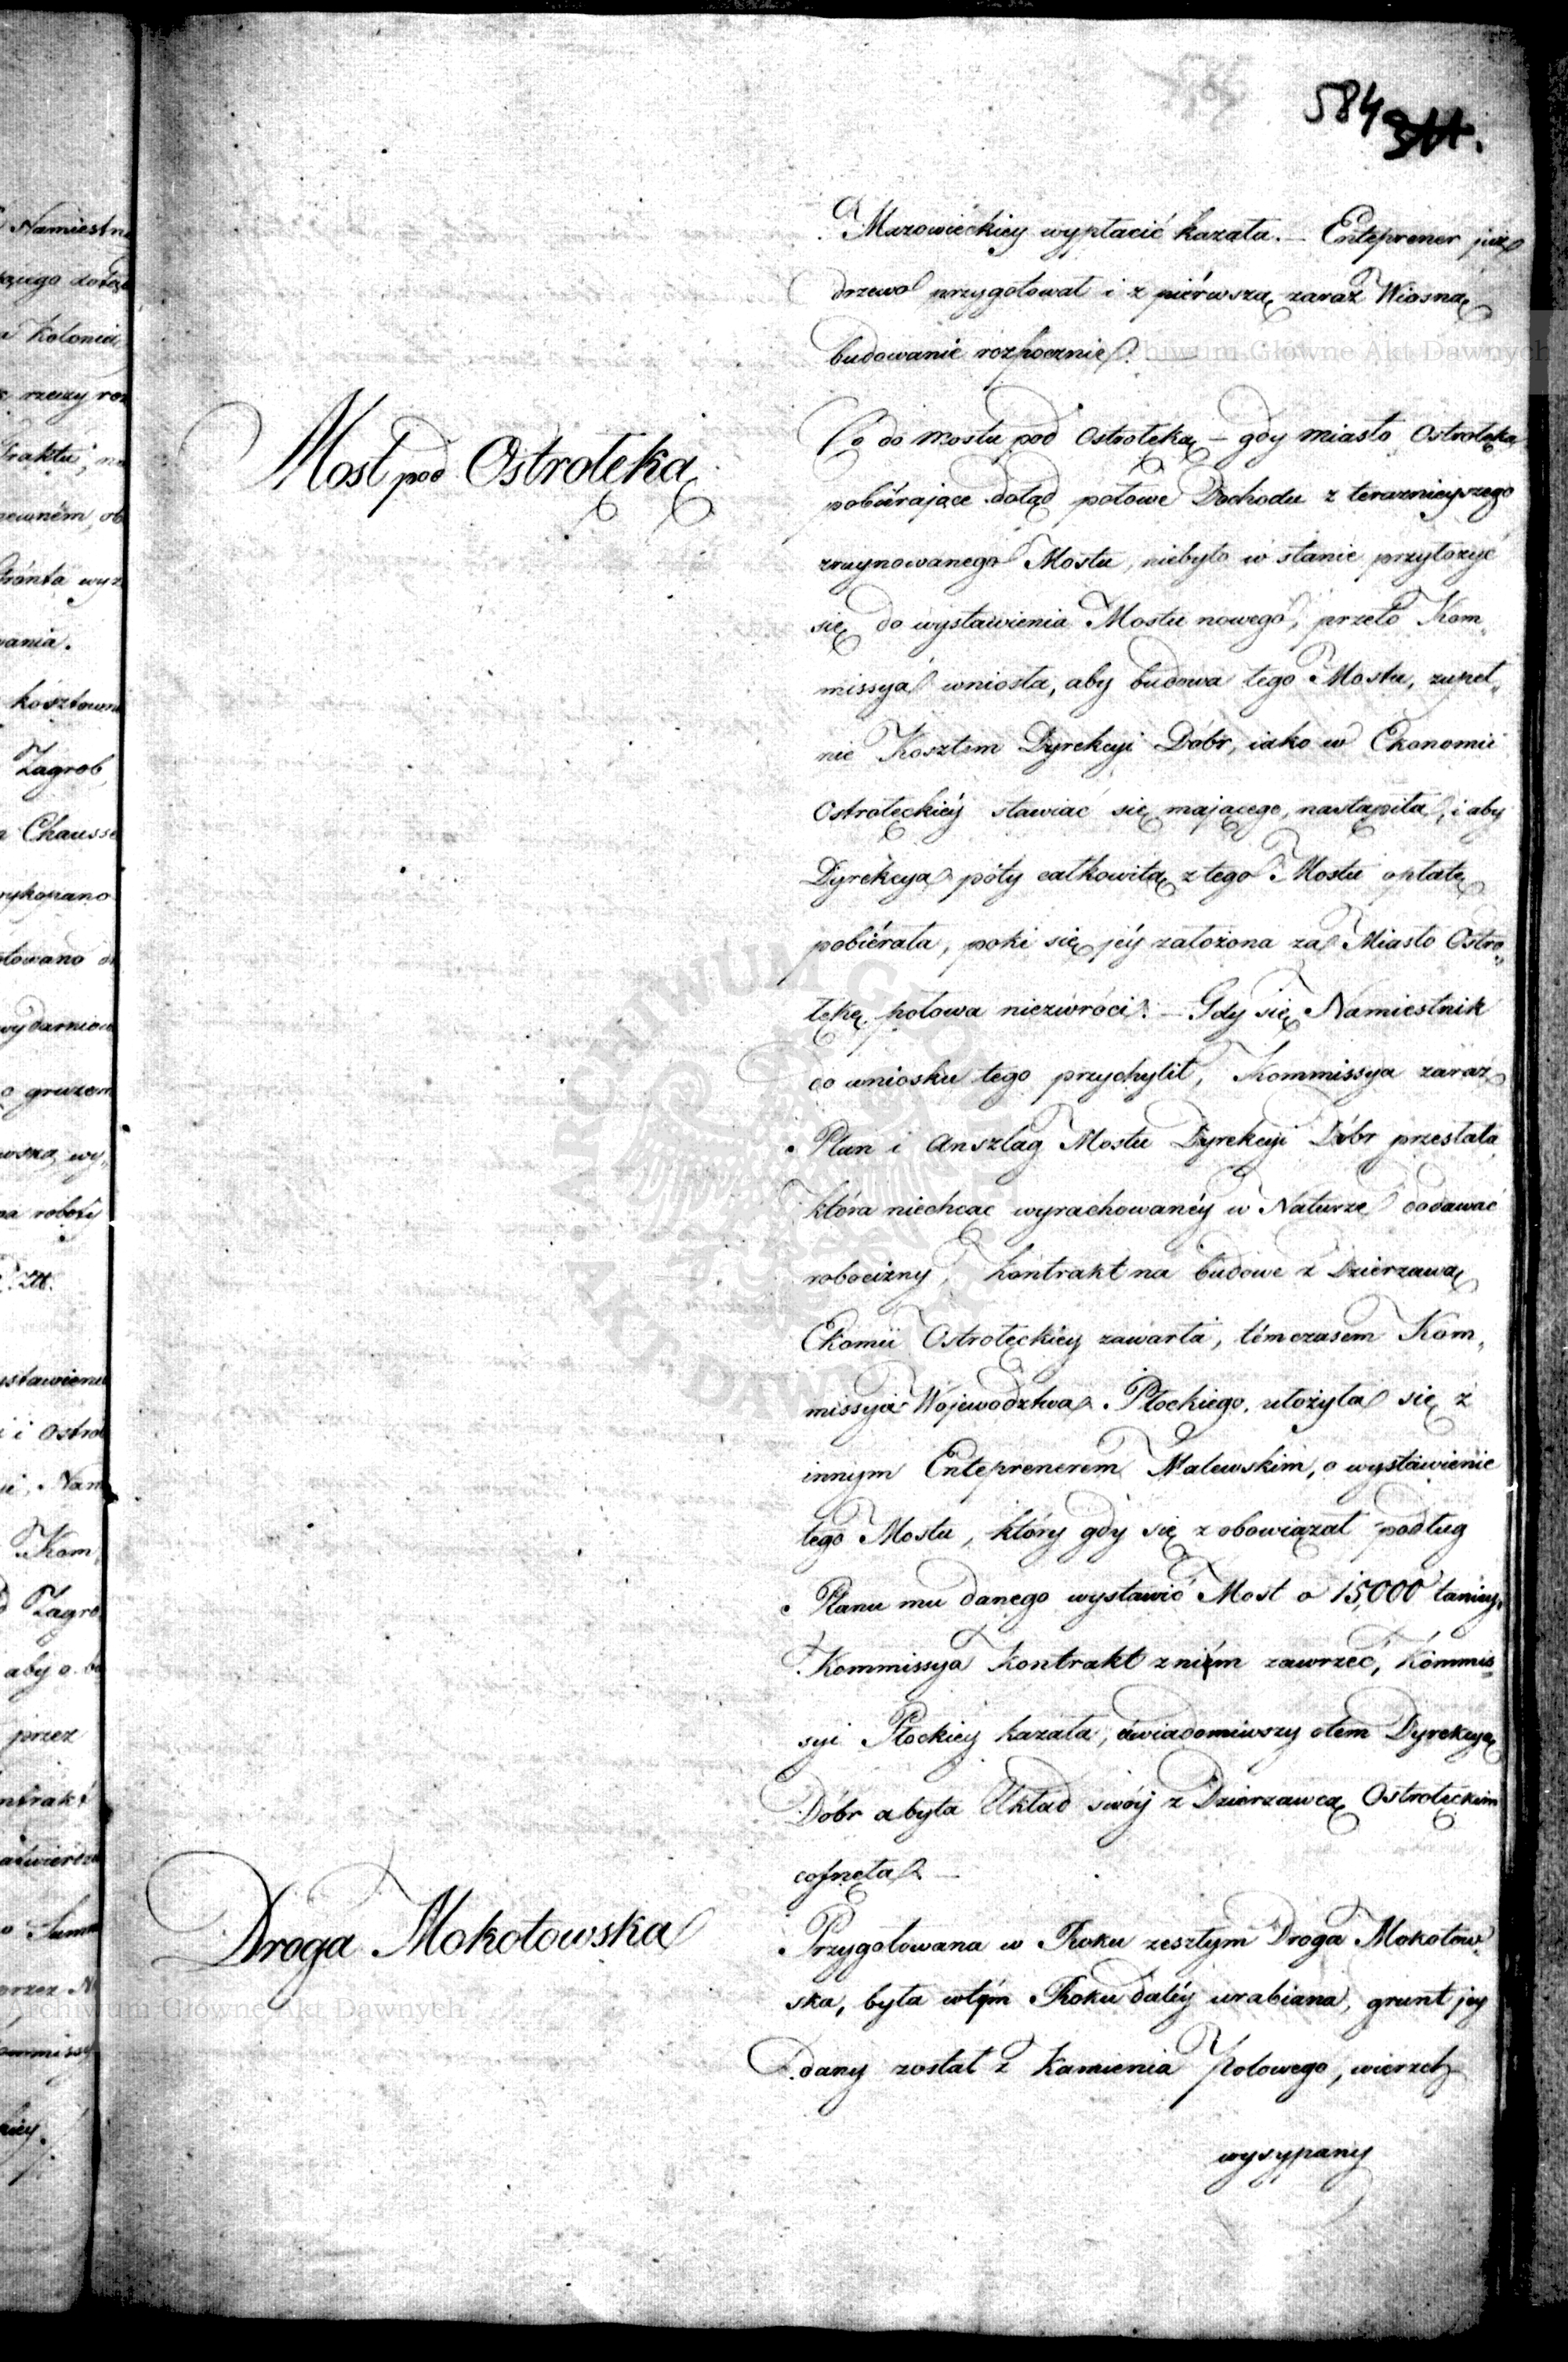 584
Mazowieckiey wypłacić kazała. — Enteprener już
drzewo przygotował i z piérwszą zaraz Wiosną
budowanie rozpocznie. —
Most pod Ostrołęką
Co do mostu pod Ostrołęką — gdy miasto Ostrołęka
pobiérające dotąd połowe Dochodu z teraznieyszego
zruynowanego Mostu, niebyło w stanie przyłożyć
się do wystawienia Mostu nowego, przeto Kom„
missya wniosła, aby budowa tego Mostu, zupeł„
nie Kosztem Dyrekcyi Dóbr, iako w Ekonomii
Ostrołęckiéy stawiać się mającego, nastąpiła, i aby
Dyrekcya póty całkowitą z tego Mostu opłatę
pobiérała, poki się jéy założona za Miasto Ostro„
łękę połowa niezwróci. — Gdy się Namiestnik
do wniosku tego przychylił, Kommissya zaraz
Plan i Anszlag Mostu Dyrekcyi Dóbr przesłała,
która niechcąc wyrachowanéy w Naturze dodawać
robocizny, kontrakt na budowe z Dzierzawą
Ekomii Ostrołęckiéy zawarła, témczasem Kom„
missyia Województwa Płockiego, ułożyła się z
innym Enteprenerem Malewskim, o wystawienie
tego Mostu, który gdy się zobowiązał podług
Planu mu danego wystawić Most o 15,000 taniey,
Kommissya kontrakt zniém zawrzeć, Kommis„
syi Płockiey kazała, uwiadomiwszy otem Dyrekcyę
Dóbr abyła Układ swóy z Dzierzawcą Ostrołęckim
cofnęła. —
Droga Mokotowska
Przygotowana w Roku zeszłym Droga Mokotow„
ska, była wtym Roku daléy urabiana, grunt jey
dany został z Kamienia Polowego, wierzch
wysypany
Archiwum Główne Akt Dawnych
Archiwum Główne Akt Dawnych
ARCHIWUM GŁÓWNE AKT DAWNYCH
Kolonii
rzeczy roz
wania.
Zagrob
Chausse
wykopano
gruzem
Zł.
i Ostroł
Kom
Zagro
aby o
przez
ntrakt
Summ